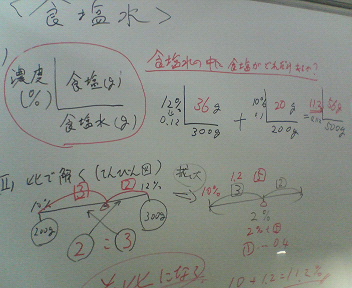 <食塩水>
食塩水の中に食塩がどれだけあるか?
濃度(%)
食塩(g)
食塩水(g)
12%
0.12
36g
300g
+
10%
0.1
20g
200g
=
56g
500g
II, 比で解く(てんびん図)
10% ③ ② 12%
200g 300g
2 : 3
拡大
10% 1.2
③ ②
2%
2%÷⑤
①…0.4
比になる
10+1.2=11.2%